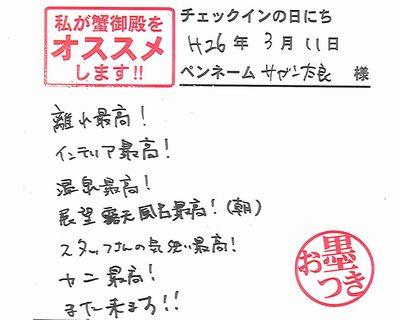 私が蟹御殿を
オススメ
します!!
チェックインの日にち
H26年 3月11日
ペンネーム サザン太良 様
離れ最高!
インテリア最高!
温泉最高!
展望露天風呂最高!(朝)
スタッフさんの気遣い最高!
カニ最高!
また来ます!!
お墨つき